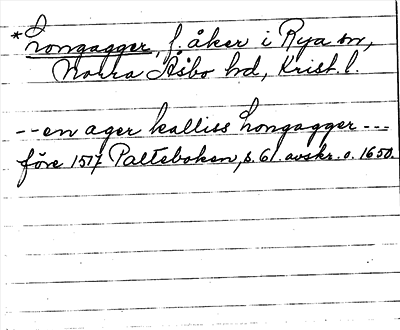 *Longagger, f. åker i Rya sn,
Norra Åsbo hd, Krist. l.
-- en ager kalliss Longagger ---
före 1517 Palteboken, s. 61. avskr. o. 1650.